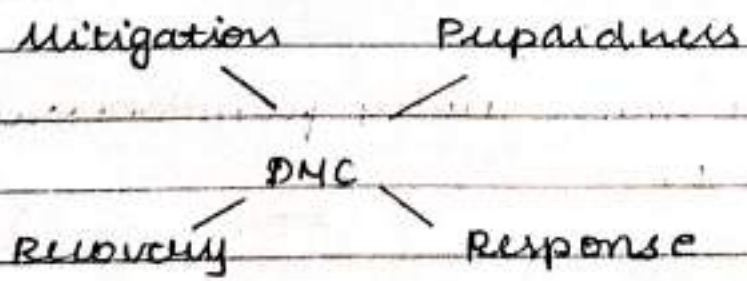 Mitigation Prepardness
DMC
Recovery Response